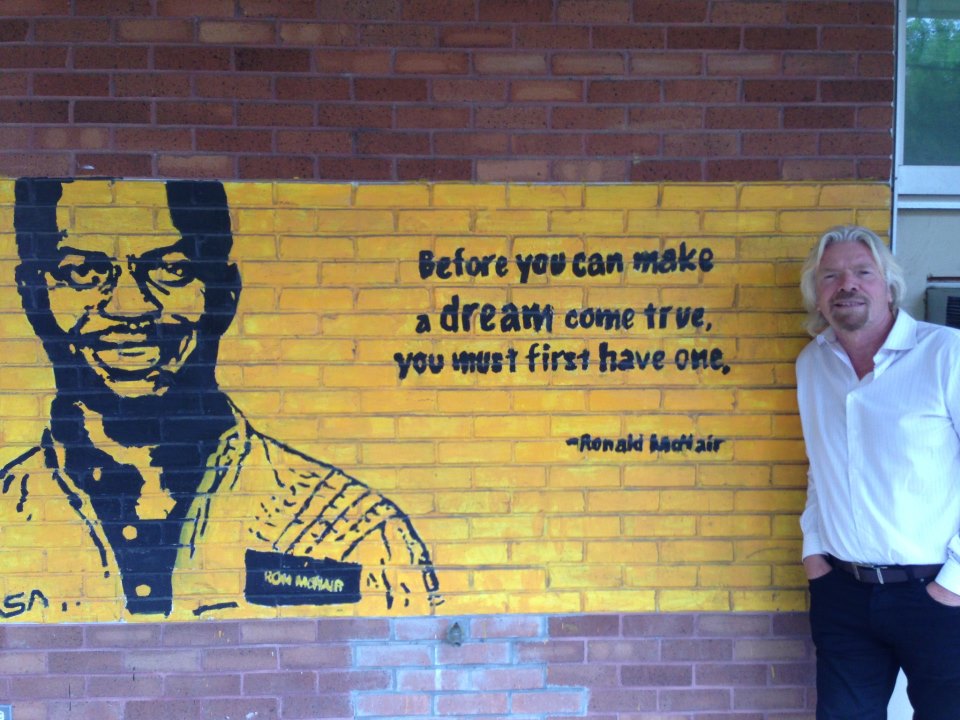 Before you can make
a dream come true,
you must first have one.
-Ronald McNair
RON MCNAIR